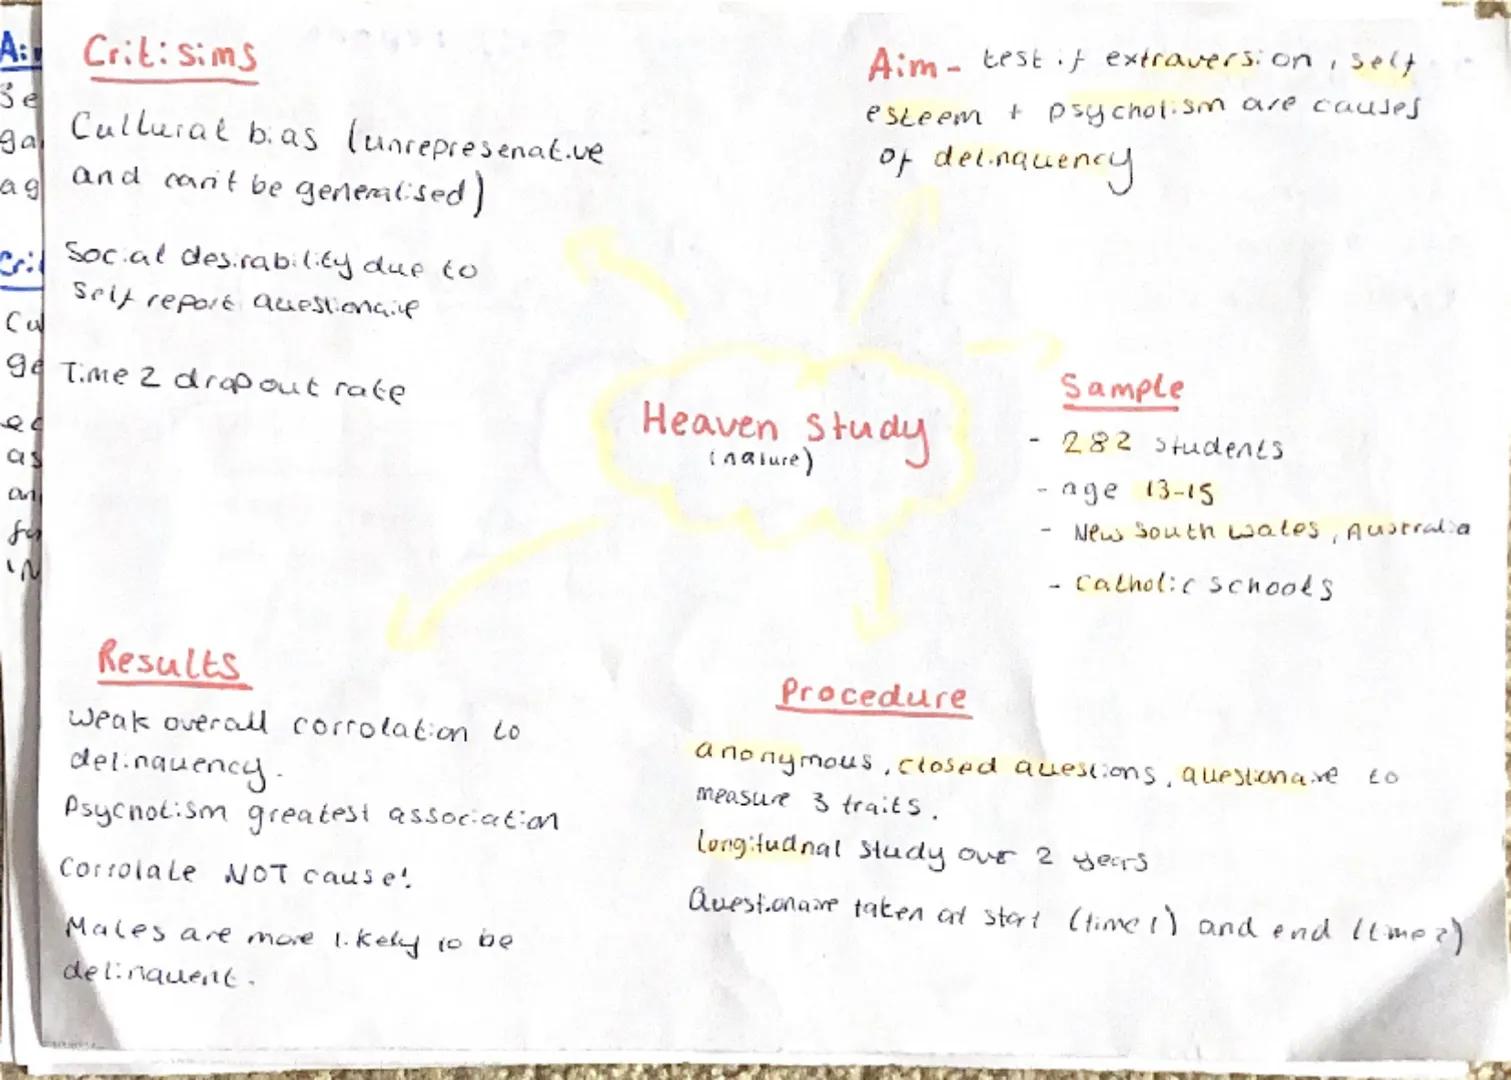 Critisims
Cultural bias (unrepresenative
and can't be generalised)
Social desirability due to
Self report questionaire
Time 2 drop out rate
Aim - test if extraversion, self
esteem + psychotism are causes
of delinquency
Heaven Study
(nature)
Sample
- 282 students
- age 13-15
- New South Wales, Australia
- Catholic schools
Results
Weak overall corrolation to
delinquency.
Psychotism greatest association
Corrolate NOT cause!
Males are more likely to be
delinquent.
Procedure
anonymous, closed questions, questionaire to
measure 3 traits.
Longitudnal study over 2 years
Questionaire taken at start (time 1) and end (time 2)